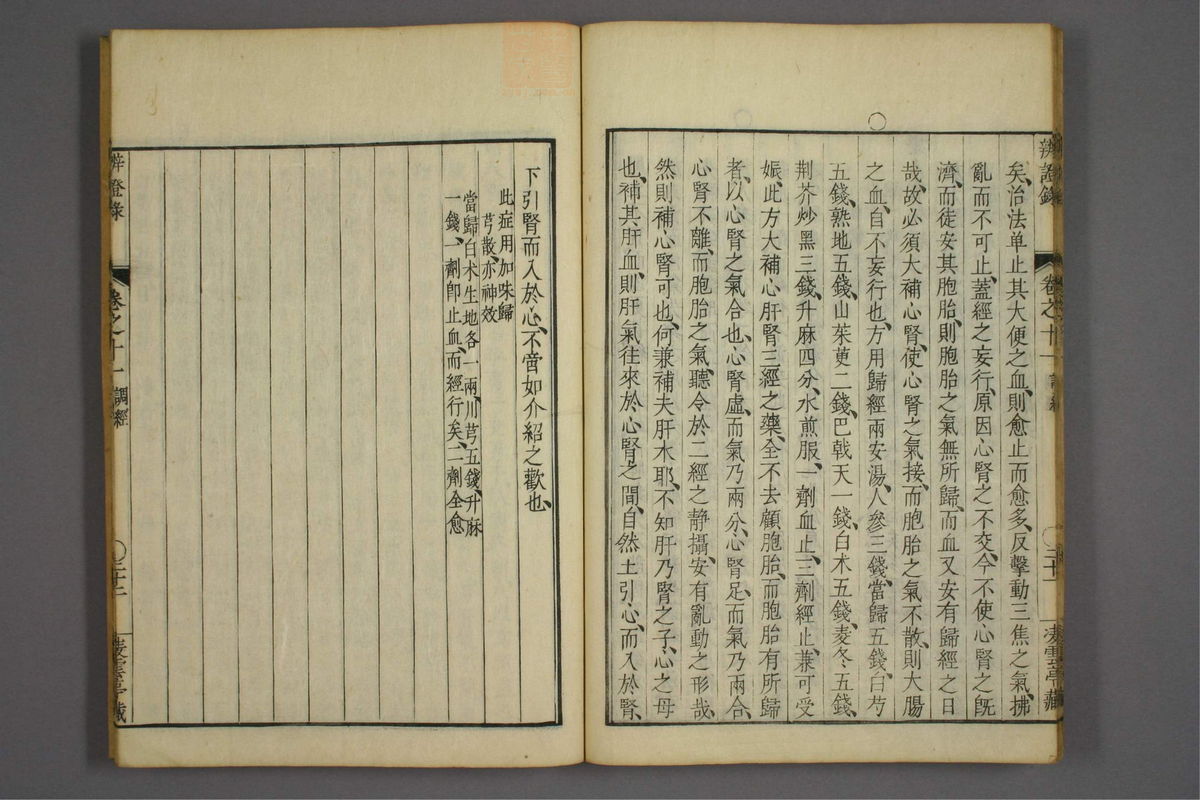 辨證錄　卷之十一　調經　凌雲亭藏
矣、治法单止其大便之血、則愈止而愈多、反擊動三焦之氣、拂
亂而不可止、蓋經之妄行、原因心腎之不交、今不使心腎之旣
濟、而徒安其胞胎、則胞胎之氣無所歸、而血又安有歸經之日
哉、故必須大補心腎、使心腎之氣接、而胞胎之氣不散、則大腸
之血、自不妄行也、方用歸經兩安湯、人參三錢、當歸五錢、白芍
五錢、熟地五錢、山茱萸二錢、巴戟天一錢、白术五錢、麦冬五錢、
荆芥炒黑三錢、升麻四分、水煎服、一劑血止、三劑經止、兼可受
娠、此方大補心肝腎三經之藥、全不去顧胞胎、而胞胎有所歸
者、以心腎之氣合也、心腎虛、而氣乃兩分、心腎足、而氣乃兩合、
心腎不離、而胞胎之氣、聽令於二經之静攝、安有亂動之形哉、
然則補心腎可也、何兼補夫肝木耶、不知肝乃腎之子、心之母
也、補其肝血、則肝氣往來於心腎之間、自然上引心、而入於腎、
下引腎而入於心、不啻如介紹之歡也、
此症用加味歸
芎散、亦神效
當歸白术生地各一兩、川芎五錢、升麻
一錢、一劑卽止血、而經行矣、二劑全愈
辨證錄　卷之十一　調經　三十二　凌雲亭藏